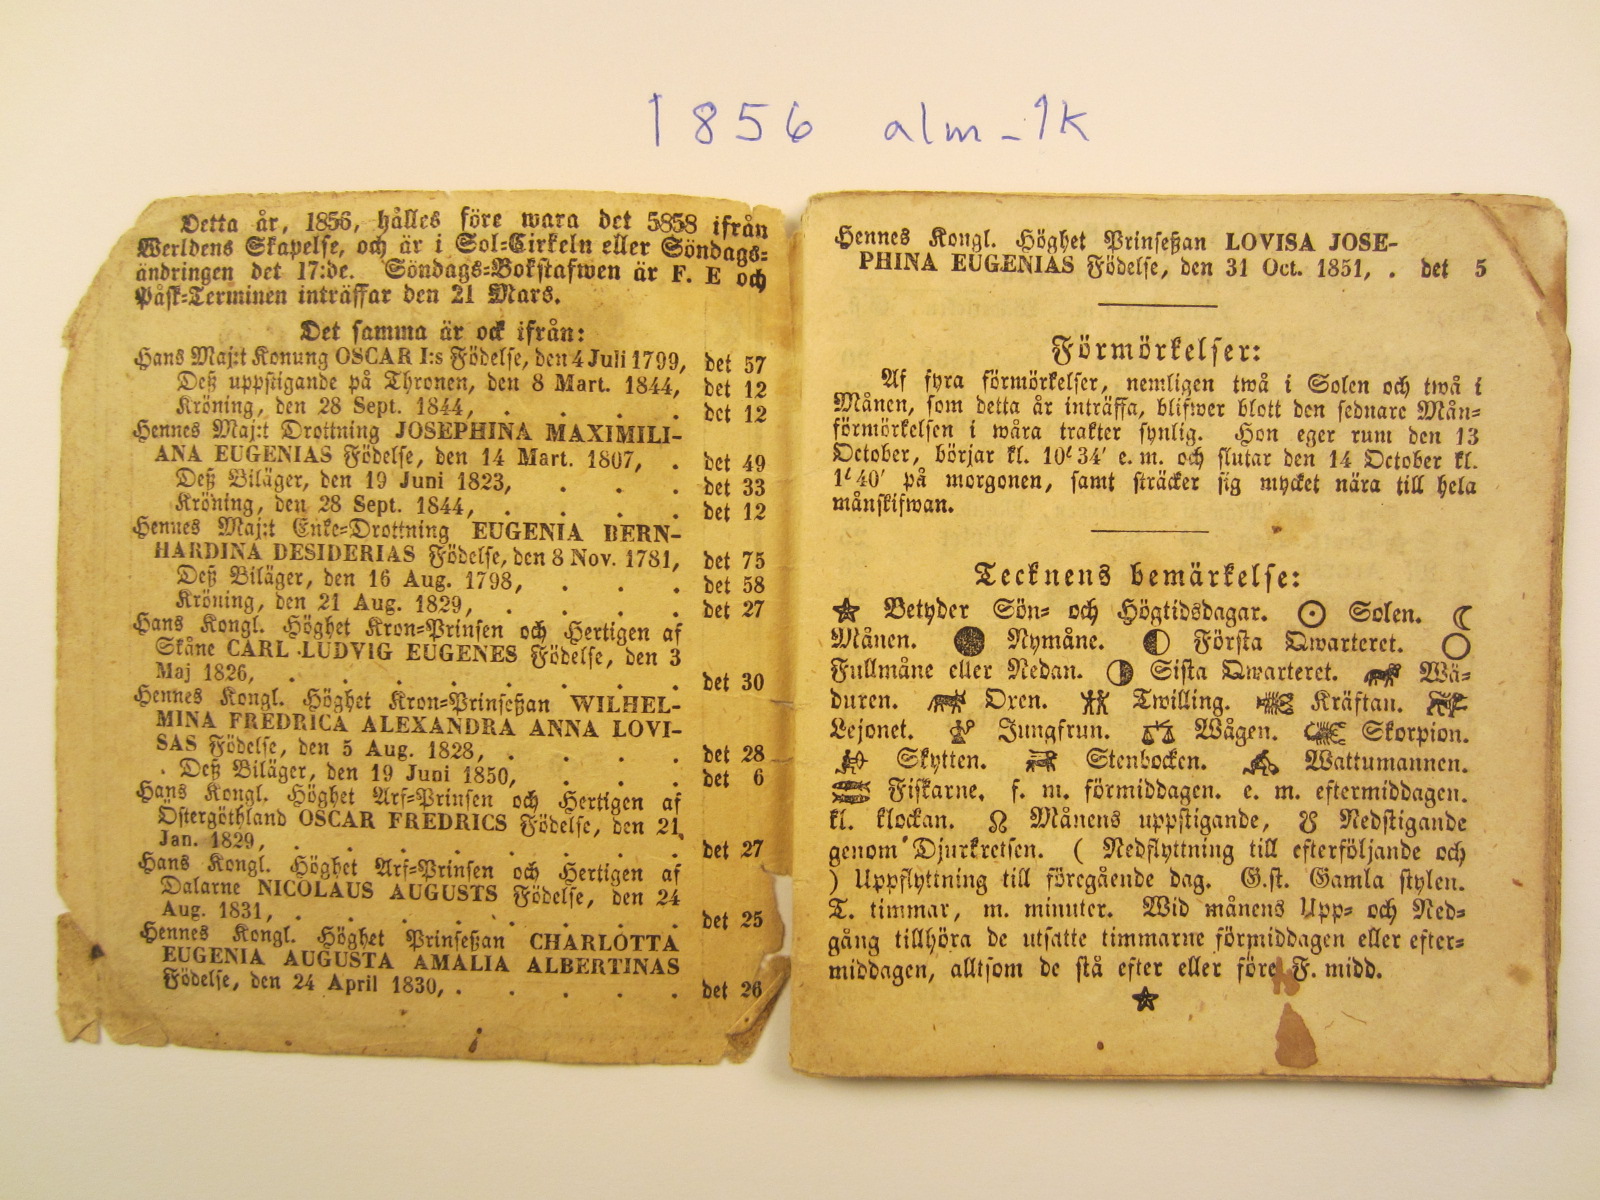 1856 alm_1k
Detta år, 1856, hålles före wara det 5858 ifrån
Werldens Skapelse, och är i Sol=Cirkeln eller Söndags=
ändringen det 17:de. Söndags=Bokstafwen är F. E och
Påsk=Terminen inträffar den 21 Mars.
Det samma är ock ifrån:
Hans Maj:t Konung OSCAR I:s Födelse, den 4 Juli 1799, det 57
Deß uppstigande på Thronen, den 8 Mart. 1844, det 12
Kröning, den 28 Sept. 1844, . . . . det 12
Hennes Maj:t Drottning JOSEPHINA MAXIMILI-
ANA EUGENIAS Födelse, den 14 Mart. 1807, . det 49
Deß Biläger, den 19 Juni 1823, . . . det 33
Kröning, den 28 Sept. 1844, . . . . det 12
Hennes Maj:t Enke=Drottning EUGENIA BERN-
HARDINA DESIDERIAS Födelse, den 8 Nov. 1781, det 75
Deß Biläger, den 16 Aug. 1798, . . . det 58
Kröning, den 21 Aug. 1829, . . . . det 27
Hans Kongl. Höghet Kron=Prinsen och Hertigen af
Skåne CARL LUDVIG EUGENES Födelse, den 3
Maj 1826, . . . . . . . . det 30
Hennes Kongl. Höghet Kron=Prinseßan WILHEL-
MINA FREDRICA ALEXANDRA ANNA LOVI-
SAS Födelse, den 5 Aug. 1828, . . . . det 28
Deß Biläger, den 19 Juni 1850, . . . det 6
Hans Kongl. Höghet Arf=Prinsen och Hertigen af
Östergöthland OSCAR FREDRICS Födelse, den 21
Jan. 1829, . . . . . . . . det 27
Hans Kongl. Höghet Arf=Prinsen och Hertigen af
Dalarne NICOLAUS AUGUSTS Födelse, den 24
Aug. 1831, . . . . . . . . det 25
Hennes Kongl. Höghet Prinseßan CHARLOTTA
EUGENIA AUGUSTA AMALIA ALBERTINAS
Födelse, den 24 April 1830, . . . . . det 26
Hennes Kongl. Höghet Prinseßan LOVISA JOSE-
PHINA EUGENIAS Födelse, den 31 Oct. 1851, . det 5
Förmörkelser:
Af fyra förmörkelser, nemligen twå i Solen och twå i
Månen, som detta år inträffa, blifwer blott den sednare Mån=
förmörkelsen i wåra trakter synlig. Hon eger rum den 13
October, börjar kl. 10t 34' e. m. och slutar den 14 October kl.
1t 40' på morgonen, samt sträcker sig mycket nära till hela
månskifwan.
Tecknens bemärkelse:
★ Betyder Sön= och Högtidsdagar. ☉ Solen. ☾
Månen. ● Nymåne. ◐ Första Qwarteret. ○
Fullmåne eller Nedan. ◑ Sista Qwarteret. Wä=
duren. Oxen. Twilling. Kräftan.
Lejonet. Jungfrun. Wågen. Skorpion.
Skytten. Stenbocken. Wattumannen.
Fiskarne. f. m. förmiddagen. e. m. eftermiddagen.
kl. klockan. ☊ Månens uppstigande, ☋ Nedstigande
genom Djurkretsen. ( Nedflyttning till efterföljande och
) Uppflyttning till föregående dag. G.st. Gamla stylen.
T. timmar, m. minuter. Wid månens Upp= och Ned=
gång tillhöra de utsatte timmarne förmiddagen eller efter=
middagen, alltsom de stå efter eller före F. midd.
★